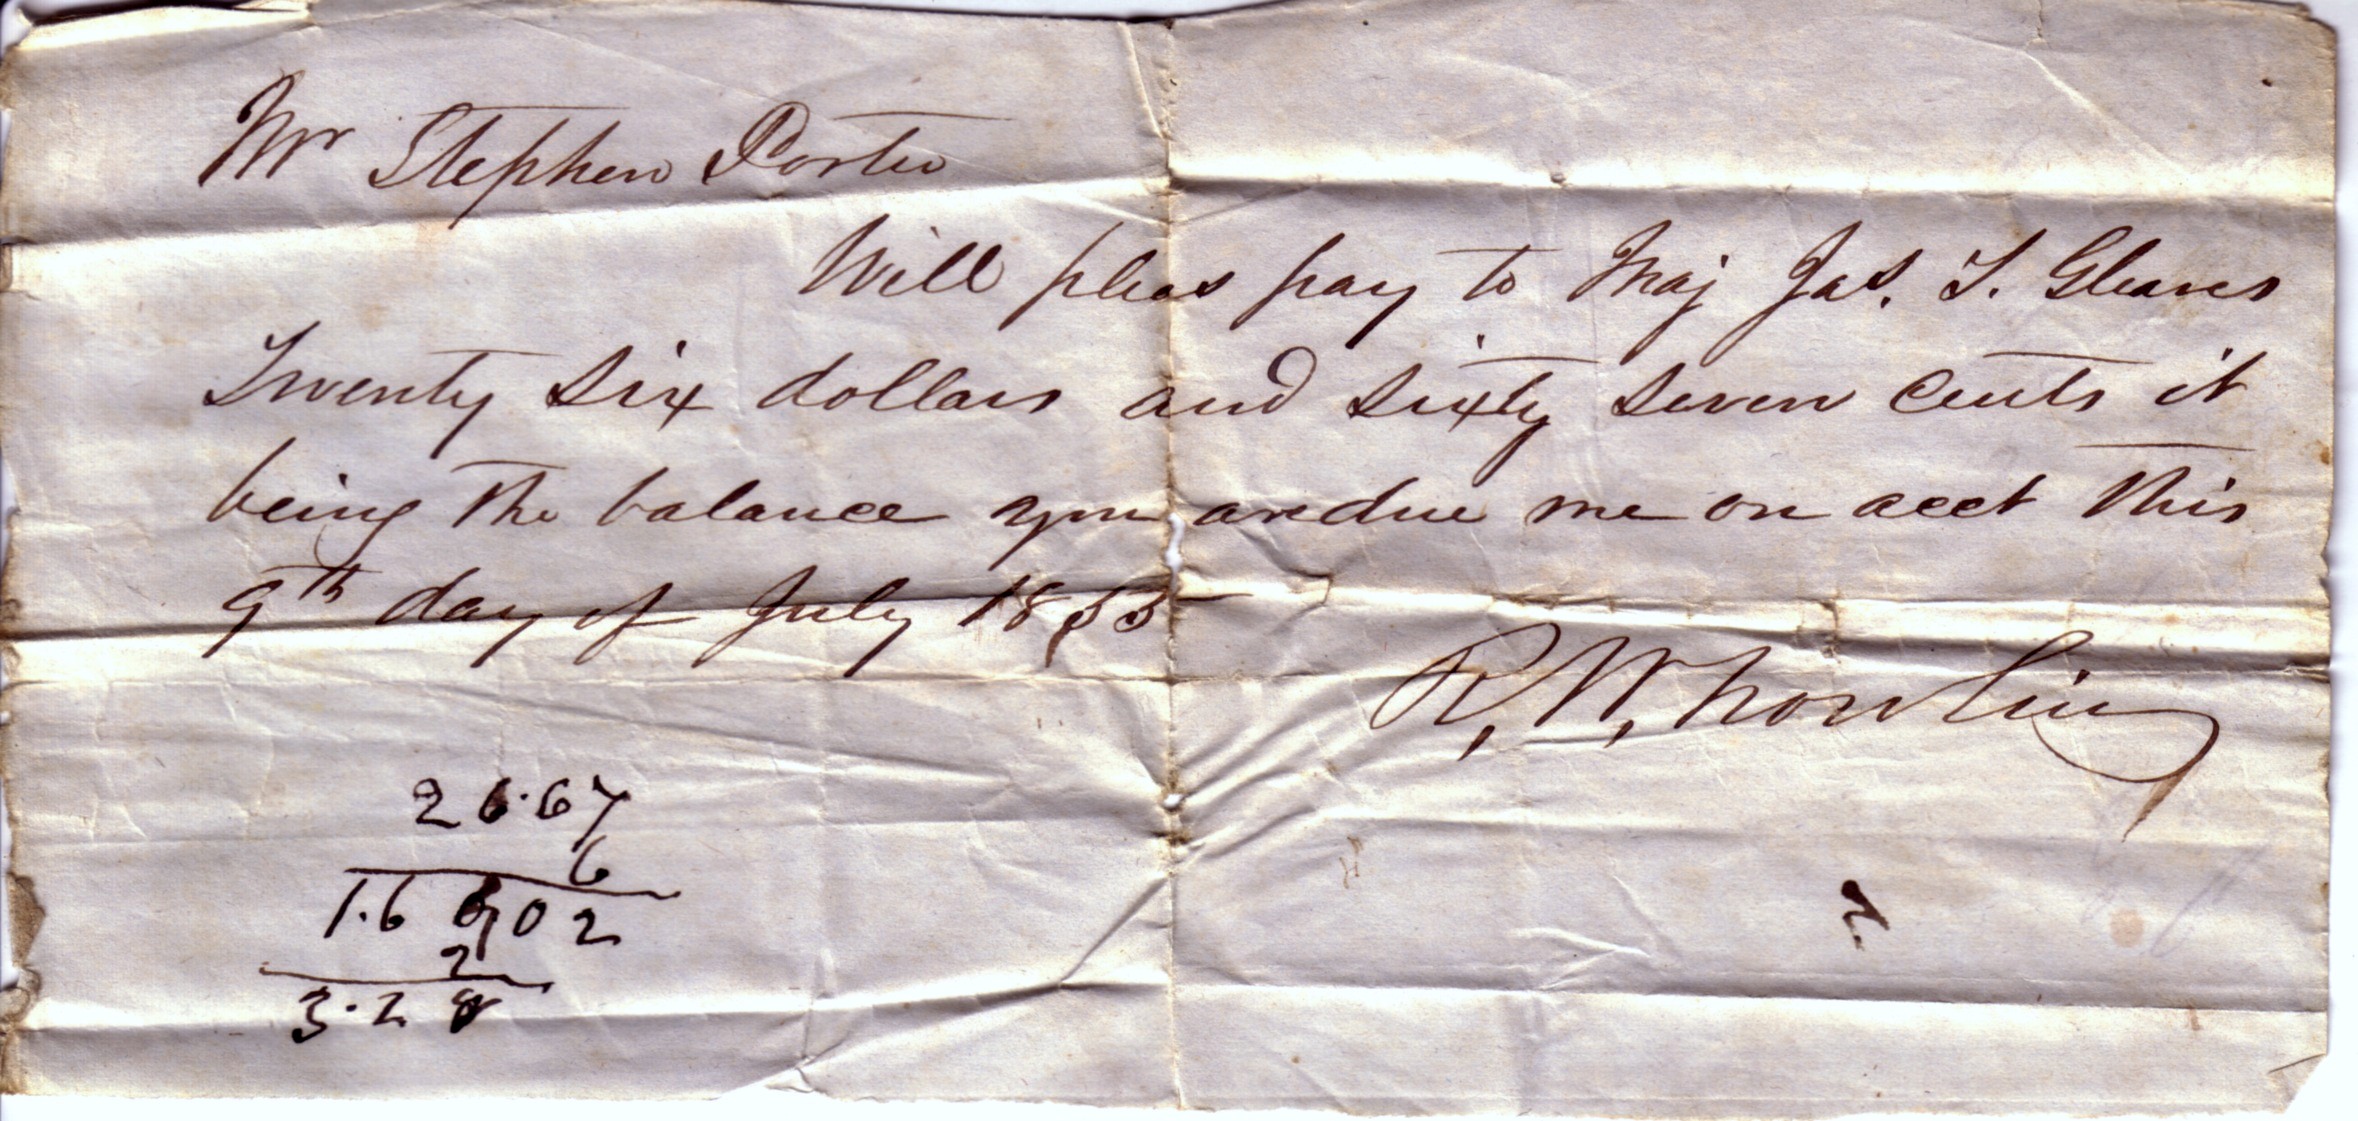 Mr Stephen Porter
Will pleas pay to Maj Jas. T. Gleaves
Twenty six dollars and sixty seven cents it
being the balance you are due me on acct this
9th day of July 1855
R. W.
26.67
6
1.6 0 2
2
3.2
2.